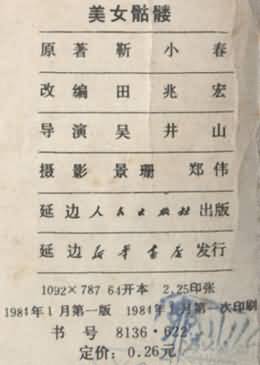 美女骷髅
原著 靳小春
改编 田兆宏
导演 吴井山
摄影 景珊 郑伟
延边人民出版社出版
延边新华书店发行
1092×787 64开本 2.25印张
1984年1月第一版 1984年1月第一次印刷
书号 8136·622
定价：0.26元